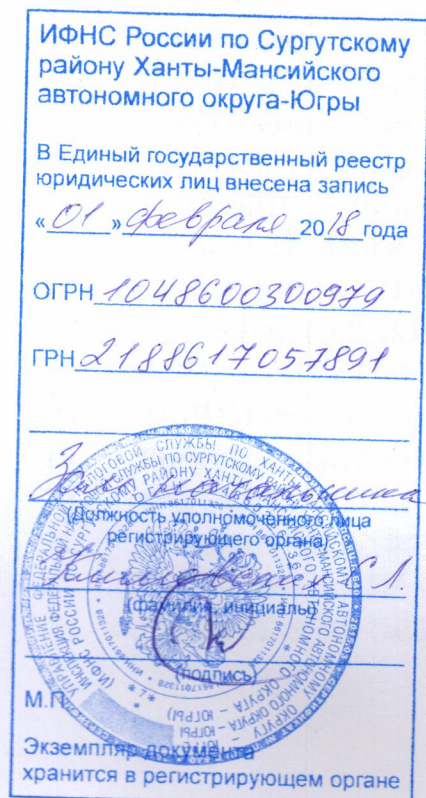 ИФНС России по Сургутскому
району Ханты-Мансийского
автономного округа-Югры
В Единый государственный реестр
юридических лиц внесена запись
«01» февраля 2018 года
ОГРН 1048600300979
ГРН 2188617057891
Зам. начальника
(Должность уполномоченного лица
регистрирующего органа)
С.Л.
(фамилия, инициалы)
(подпись)
М.П.
Экземпляр документа
хранится в регистрирующем органе